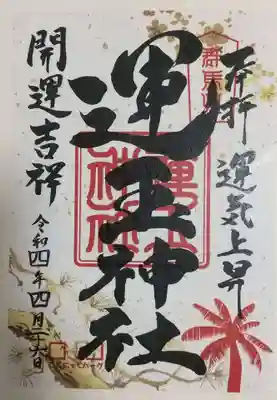 奉拝 運気上昇
群馬
運玉神社
開運吉祥
令和四年四月二十六日